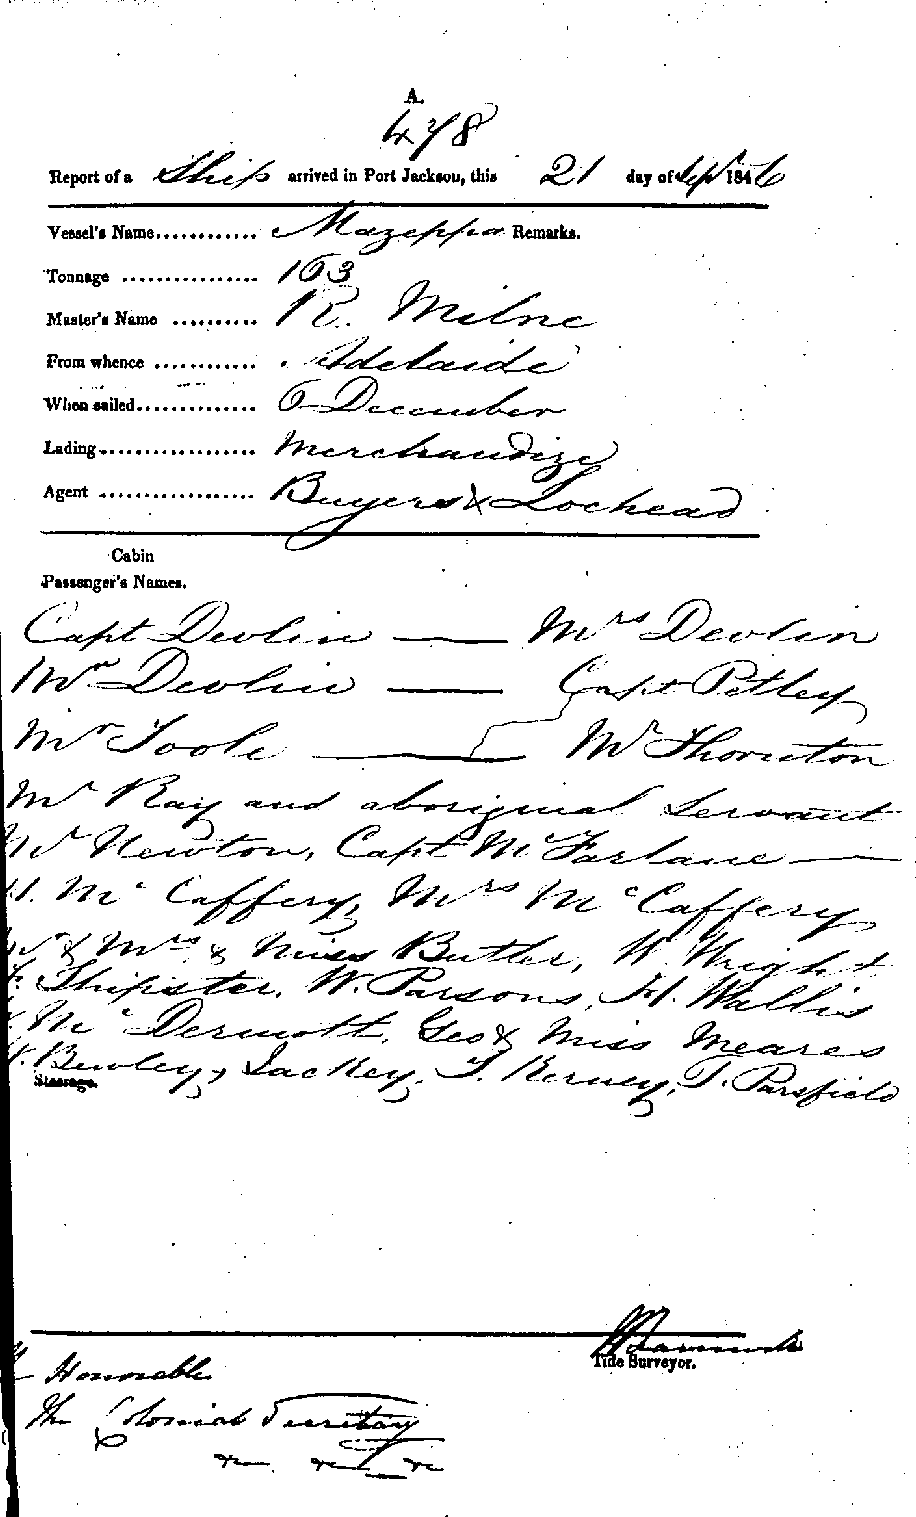 A.
478
Report of a Ship arrived in Port Jackson, this 21 day of Sept 1846
Vessel's Name............ Mazeppa Remarks.
Tonnage ............... 163
Master's Name .......... R. Milne
From whence ............ Adelaide
When sailed.............. 6 December
Lading.................. Merchandize
Agent .................. Buyers & Lochead
Cabin
Passenger's Names.
Capt Devlin — Mrs Devlin
Mr Devlin — Capt Petley
Mr Toole — Mr Thornton
Mr Ray and aboriginal Servant
Mr Newton, Capt McFarlane —
Mc Caffery, Mrs McCaffery
& Mrs & Miss Butler, W. Wright
Shipster, W. Parsons, H. Wallis
Mc Dermott, Geo & Miss Meares
Bewley, Mackey, T. Kerney, T. Parsfield
Steerage.
Tide Surveyor.
Honorable
The Colonial Secretary